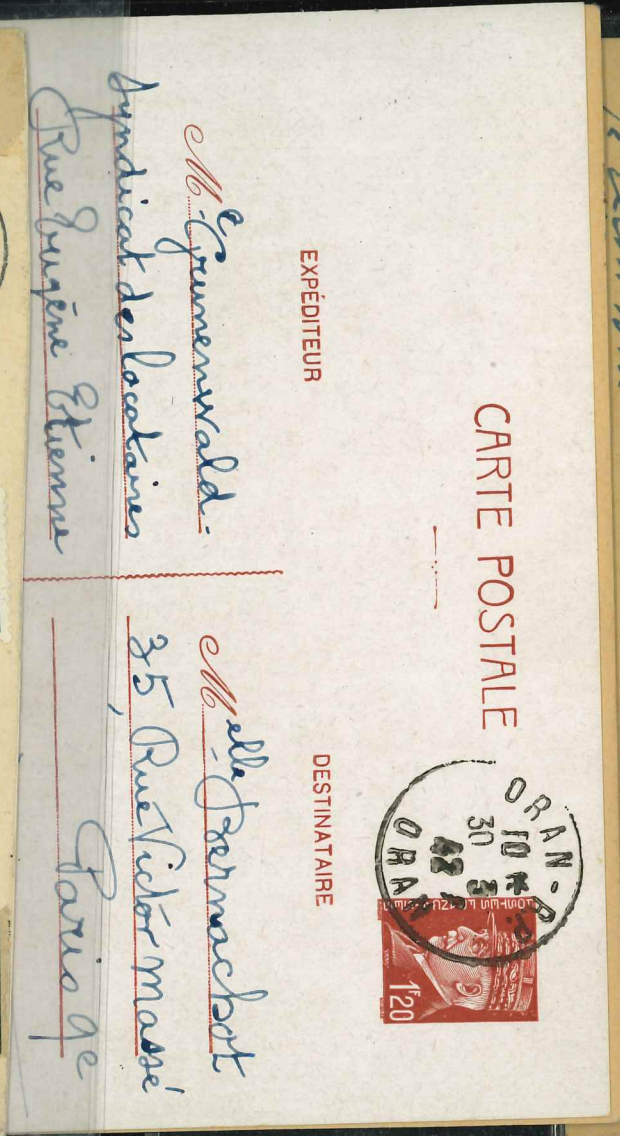 CARTE POSTALE
ORAN-R.P.
10 *
30 3
42
ORAN
POSTES FRANÇAISES
1F20
EXPÉDITEUR
Me Grunenwald -
Syndicat des locataires
Rue Eugène Etienne
DESTINATAIRE
Melle Bermachot
35, Rue Victor Massé
Paris 9e